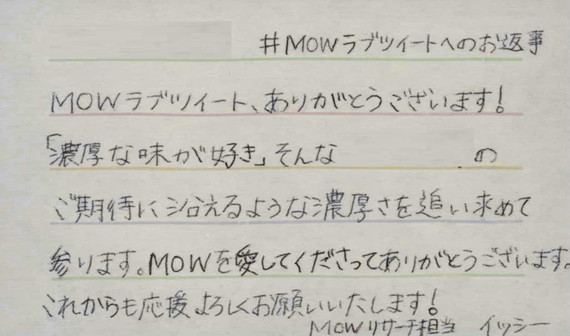 #MOWラブツイートへのお返事
MOWラブツイート、ありがとうございます!
「濃厚な味が好き」そんな の
ご期待に沿えるような濃厚さを追い求めて
参ります。MOWを愛してくださってありがとうございます。
これからも応援よろしくお願いいたします!
MOWリサーチ担当 イッシー